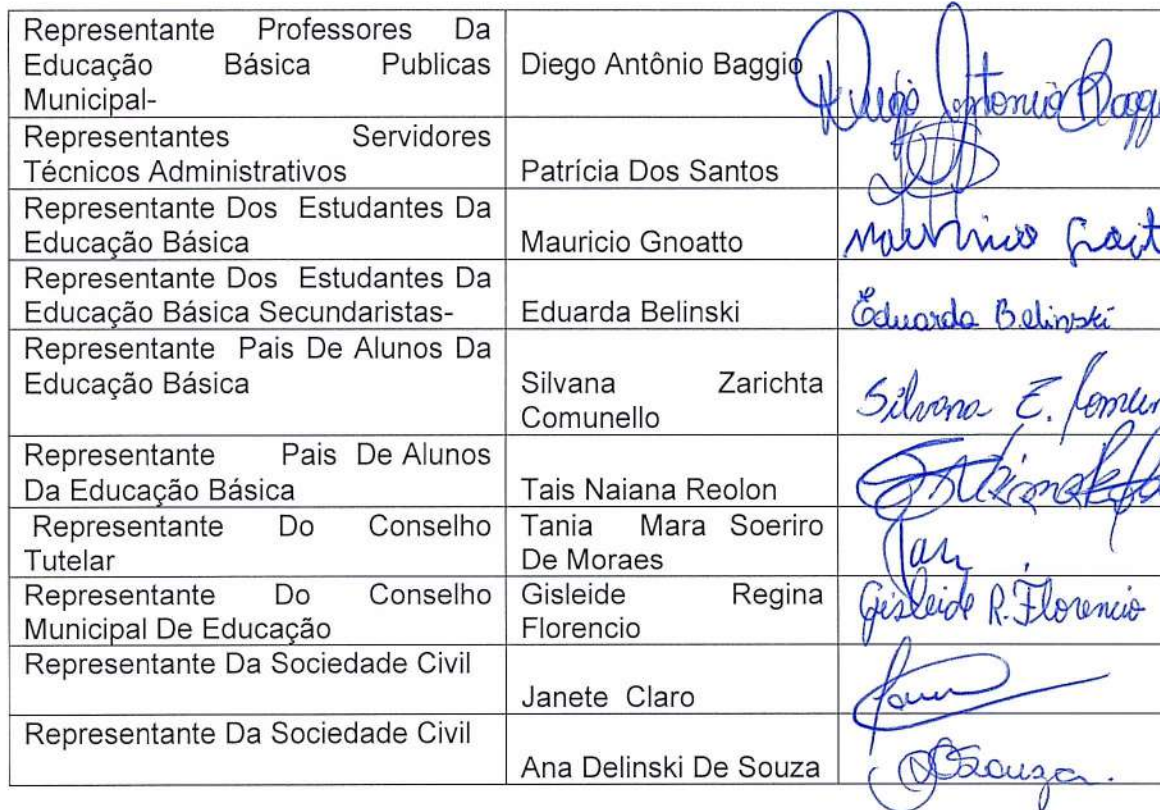 Representante Professores Da
Educação Básica Publicas
Municipal-
Diego Antônio Baggio
Diego Antonio Baggi
Representantes Servidores
Técnicos Administrativos
Patrícia Dos Santos
Representante Dos Estudantes Da
Educação Básica
Mauricio Gnoatto
Representante Dos Estudantes Da
Educação Básica Secundaristas-
Eduarda Belinski
Eduarda Belinski
Representante Pais De Alunos Da
Educação Básica
Silvana Zarichta
Comunello
Silvana Z. Comun
Representante Pais De Alunos
Da Educação Básica
Tais Naiana Reolon
Representante Do Conselho
Tutelar
Tania Mara Soeriro
De Moraes
Representante Do Conselho
Municipal De Educação
Gisleide Regina
Florencio
Gisleide R. Florencio
Representante Da Sociedade Civil
Janete Claro
Representante Da Sociedade Civil
Ana Delinski De Souza
Souza.